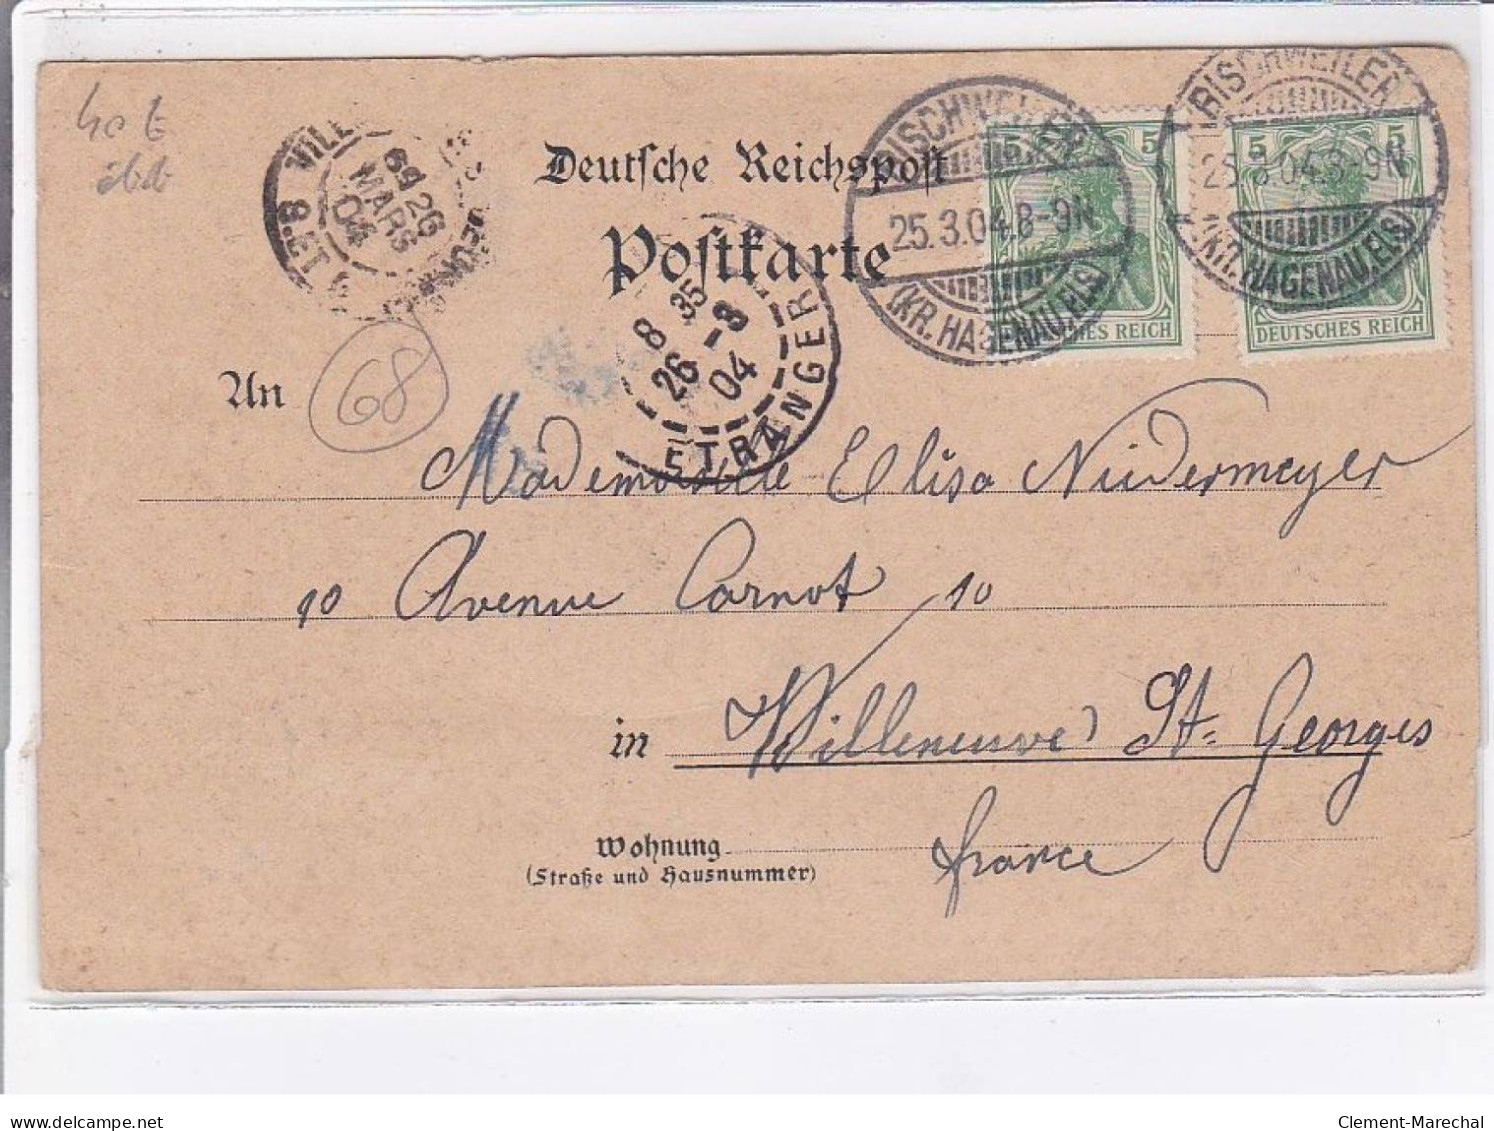 40 E
Deutsche Reichspost
Postkarte
BISCHWEILER
25.3.04.8-9N
(KR. HAGENAU.ELS)
BISCHWEILER
25.3.04.8-9N
(KR. HAGENAU.ELS)
5 5
DEUTSCHES REICH
5 5
DEUTSCHES REICH
26
MARS
04
8 35
26 -3
04
ETRANGER
An
68
Mademoiselle Elisa Niedermeyer
10 Avenue Carnot 10
in Villeneuve St. Georges
france
Wohnung
(Straße und Hausnummer)
delcampe.net
Clement-Marechal